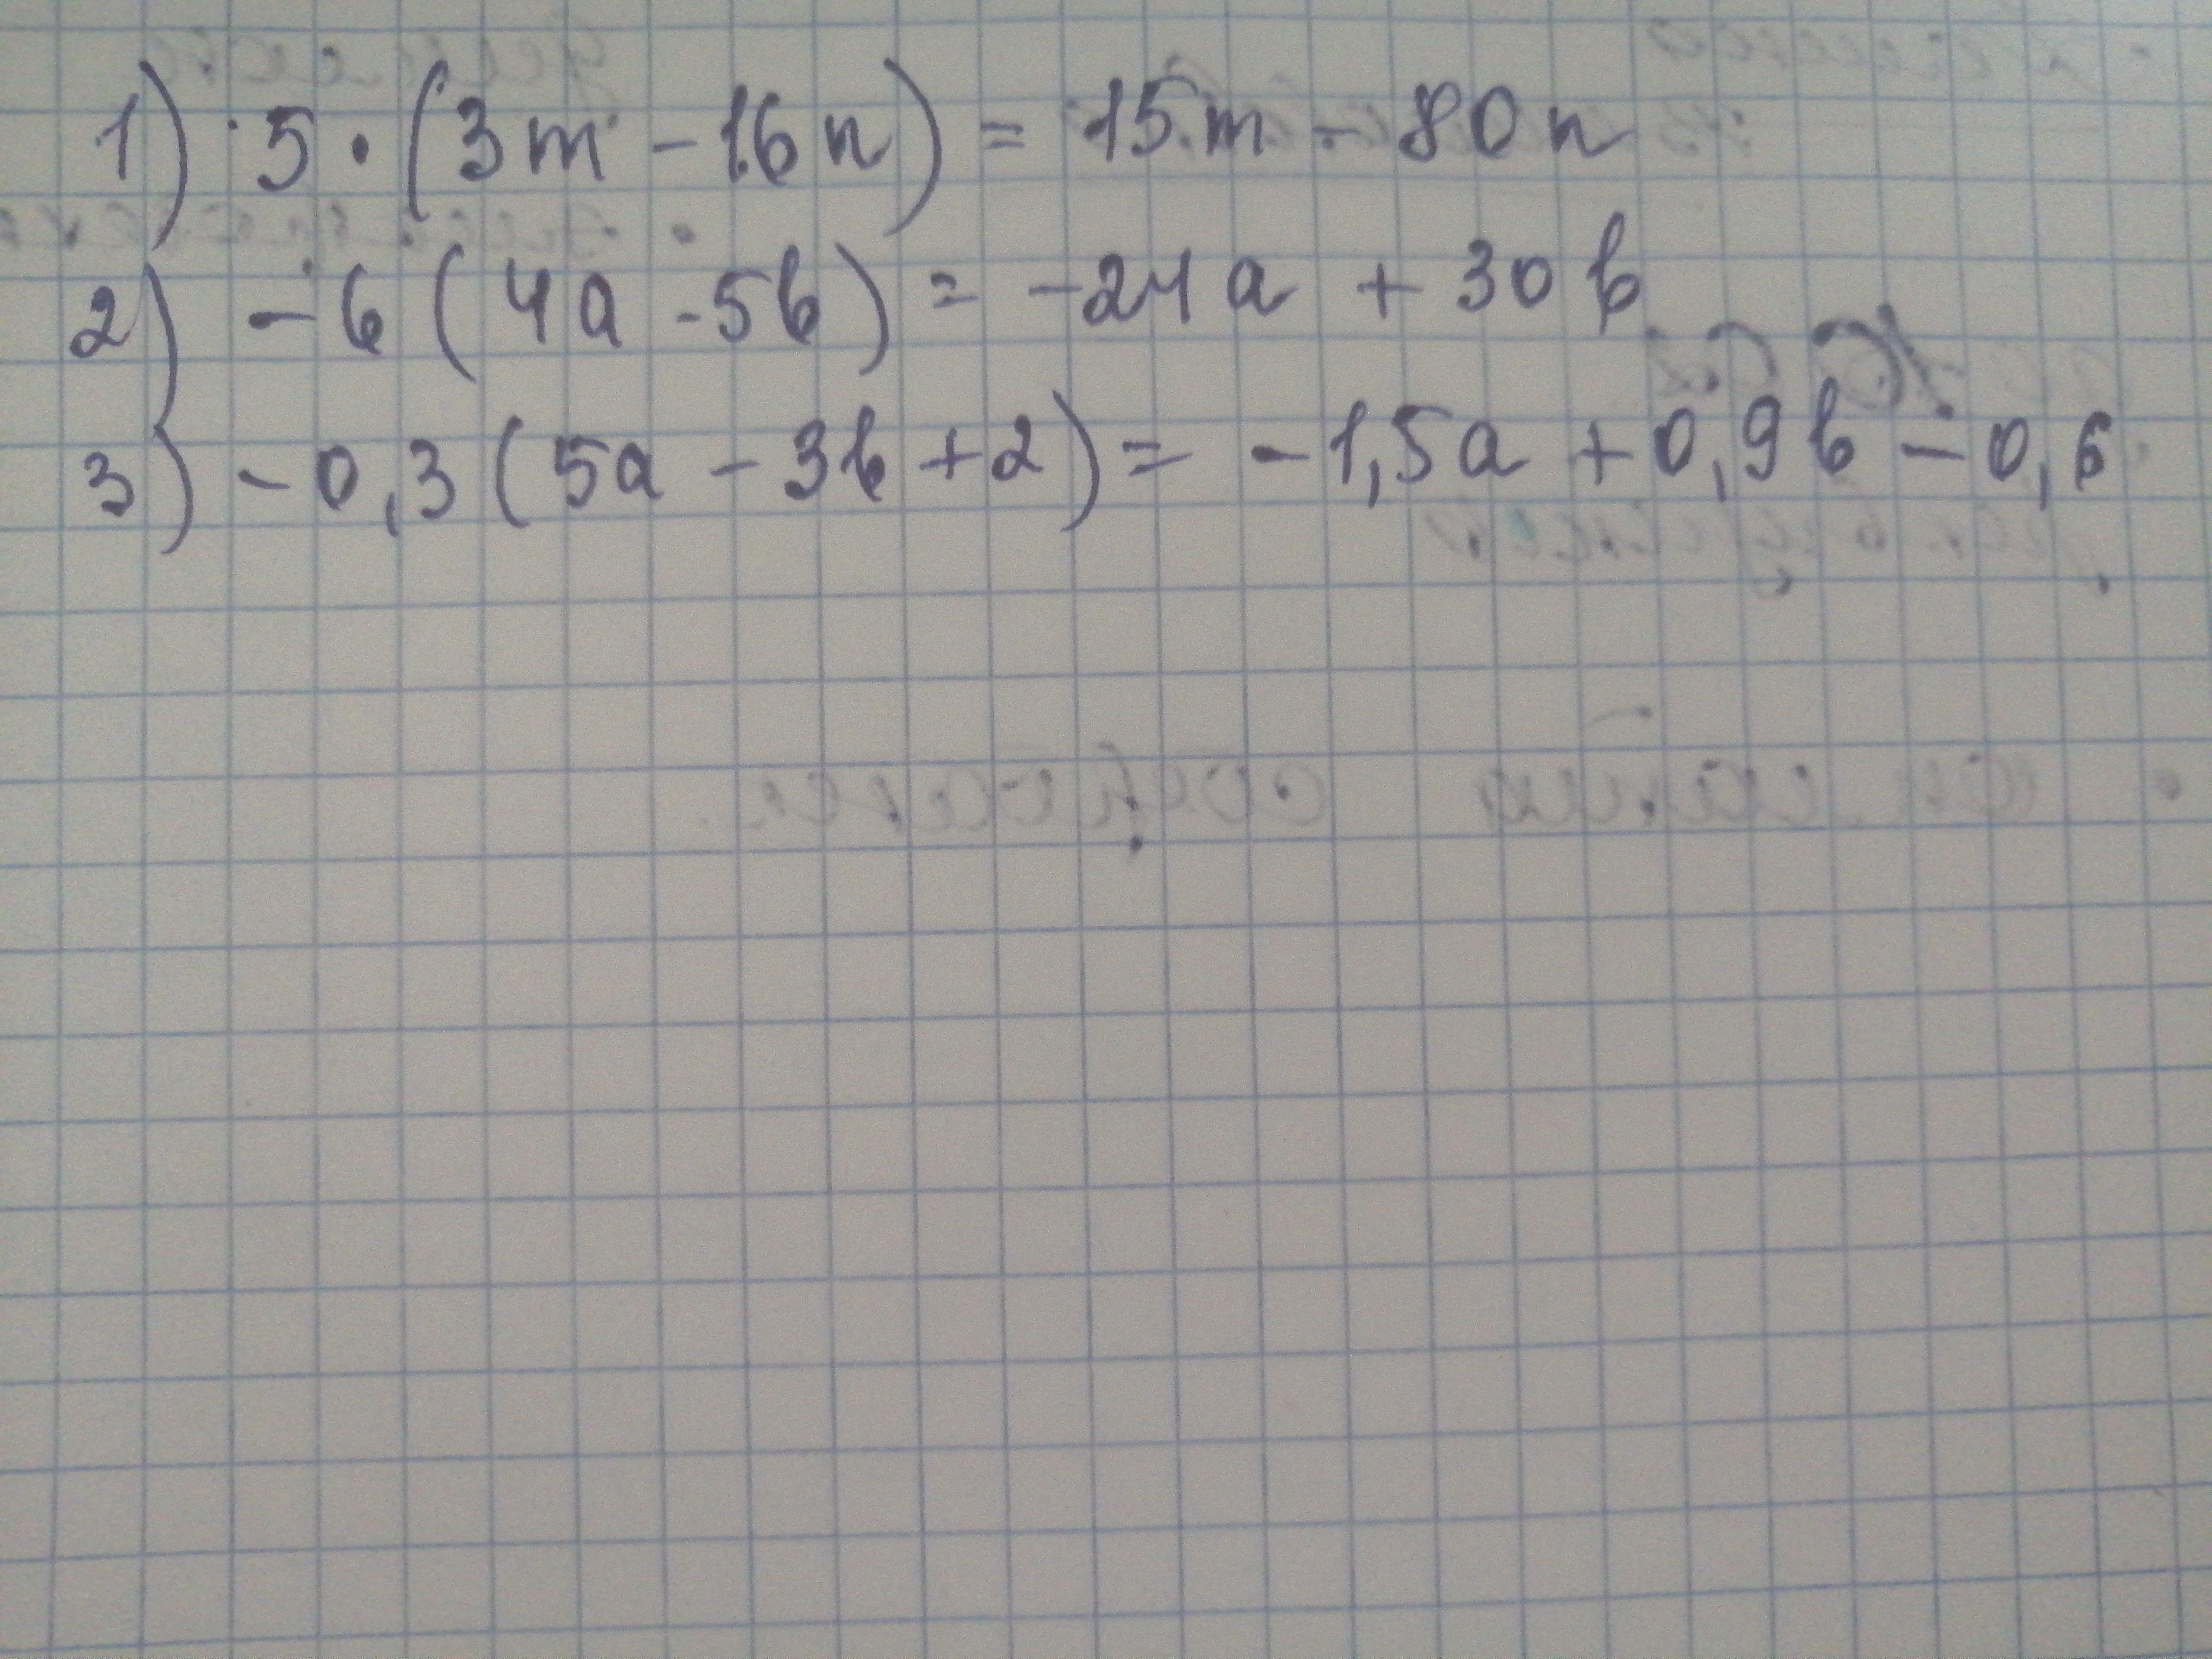 1) 5 · (3m - 16n) = 15m - 80n
2) - 6 (4a - 5b) = - 24a + 30b
3) - 0,3 (5a - 3b + 2) = - 1,5a + 0,9b - 0,6